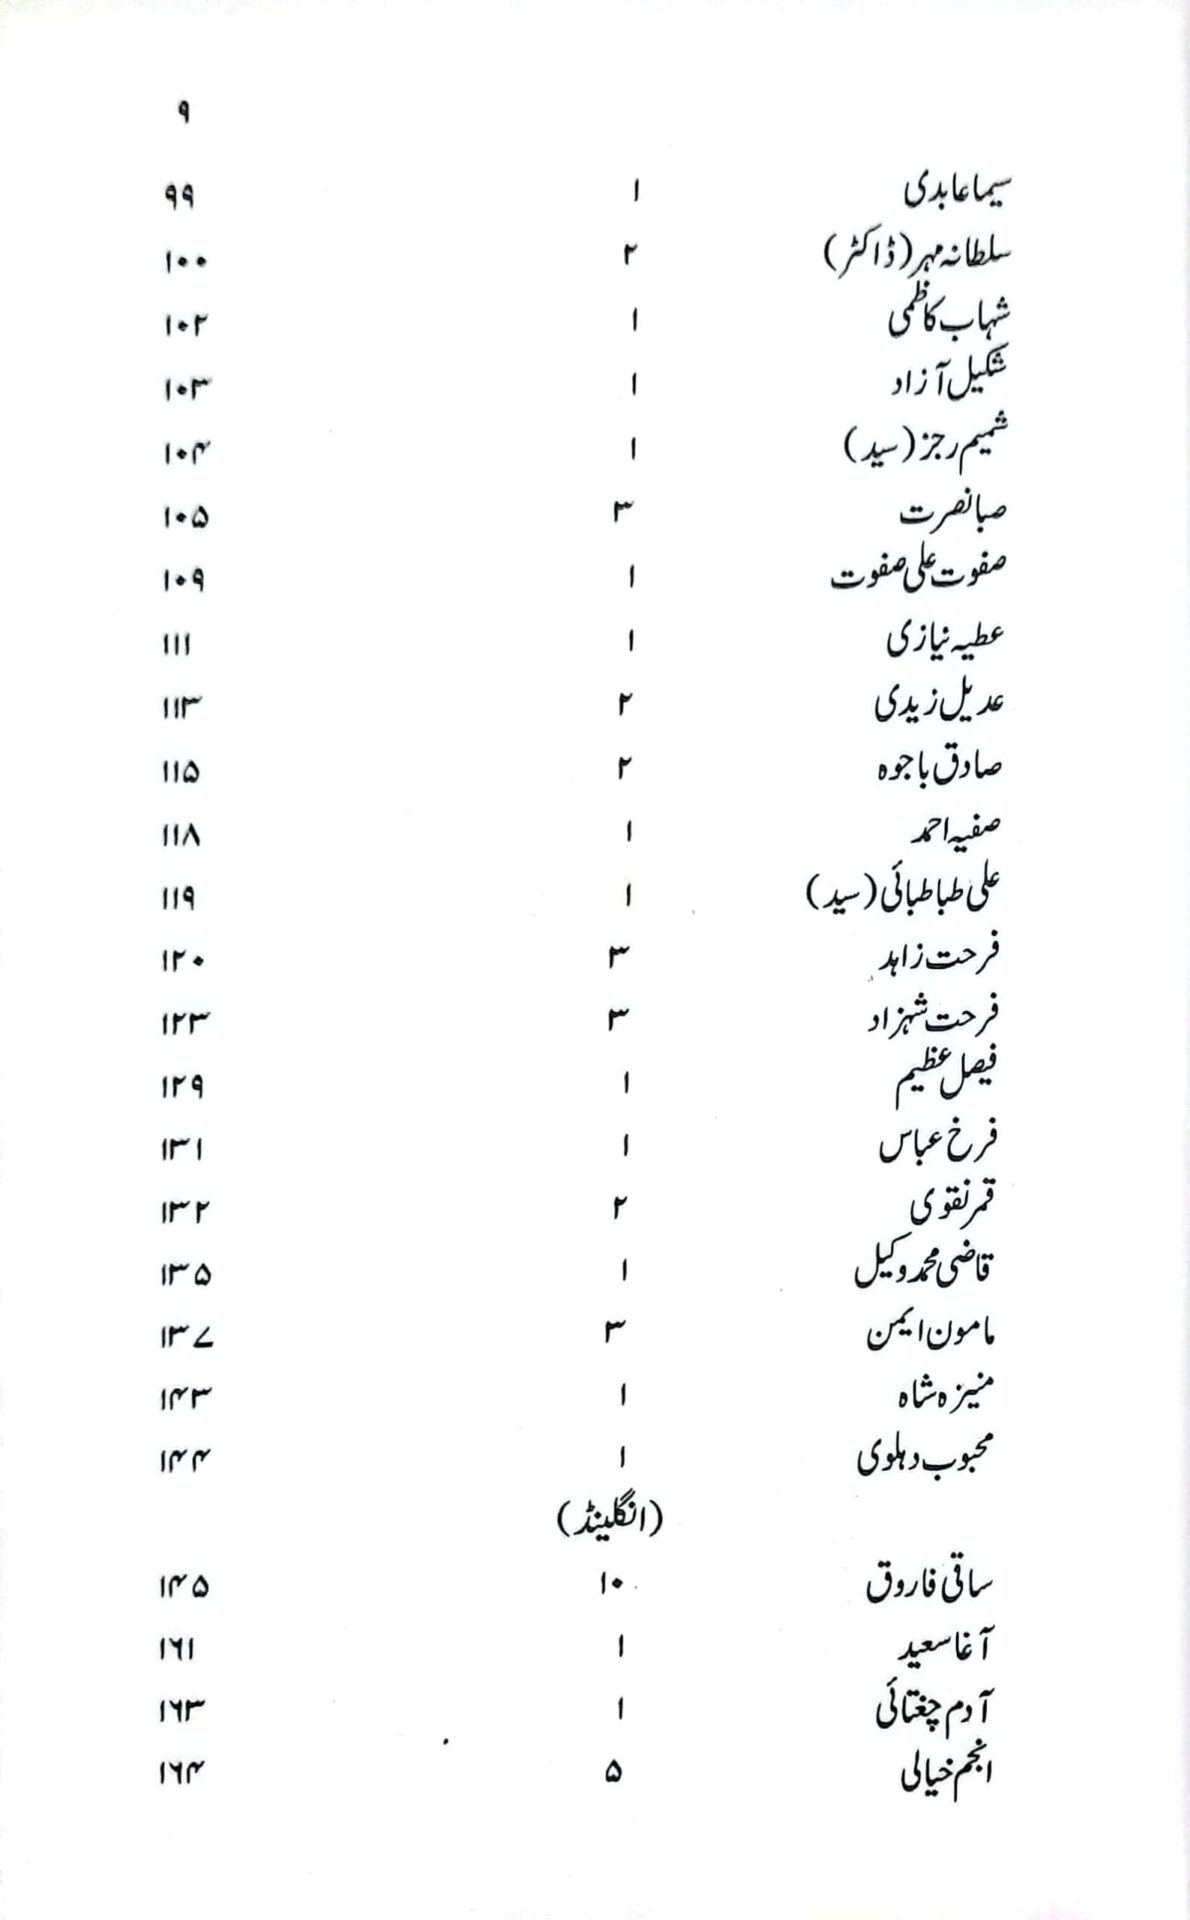 ۹
سیما عابدی ۱ ۹۹
سلطانہ مہر (ڈاکٹر) ۲ ۱۰۰
شہاب کاظمی ۱ ۱۰۲
شکیل آزاد ۱ ۱۰۳
شمیم رجز (سید) ۱ ۱۰۴
صبا نصرت ۳ ۱۰۵
صفوت علی صفوت ۱ ۱۰۹
عطیہ نیازی ۱ ۱۱۱
عدیل زیدی ۲ ۱۱۳
صادق باجوہ ۲ ۱۱۵
صفیہ احمد ۱ ۱۱۸
علی طباطبائی (سید) ۱ ۱۱۹
فرحت زاہد ۳ ۱۲۰
فرحت شہزاد ۳ ۱۲۳
فیصل عظیم ۱ ۱۲۹
فرخ عباس ۱ ۱۳۱
قمر نقوی ۲ ۱۳۲
قاضی محمد وکیل ۱ ۱۳۵
مامون ایمن ۳ ۱۳۷
منیزہ شاہ ۱ ۱۴۳
محبوب دہلوی ۱ ۱۴۴
(انگلینڈ)
ساقی فاروق ۱۰ ۱۴۵
آغا سعید ۱ ۱۶۱
آدم چغتائی ۱ ۱۶۳
انجم خیالی ۵ ۱۶۴